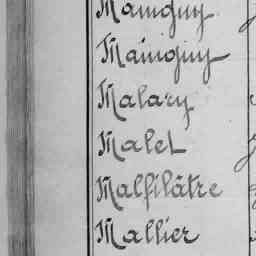 Mainguy
Mainguy
Malary
Malet
Malfilâtre
Mallier